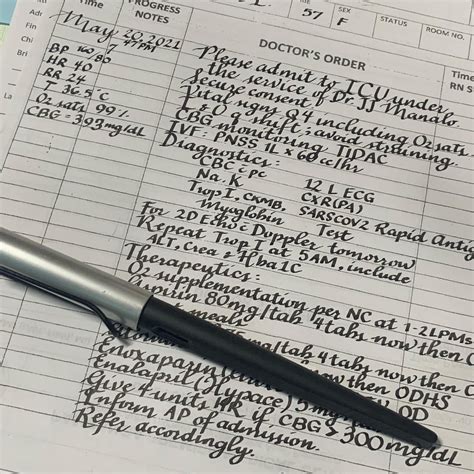 PROGRESS NOTES
DOCTOR'S ORDER
57
SEX
F
STATUS
ROOM NO.
Time
RN S
May 20, 2021
7:47PM
BP 160/80
HR 40
RR 24
T 36.5°C
O2 sats 99%
CBG = 393 mg/dL
Please admit to ICU under
the service of Dr. JJ Manalo.
Secure consent
Vital signs q4 including O2 sats
I & O q shift; avoid straining.
CBG monitoring TIDAC
IVF: PNSS 1L x 60 cc/hr
Diagnostics:
CBC c pc
12 L ECG
Na, K
CXR (PA)
Trop I, CKMB,
SARSCOV2 Rapid Antig
Myoglobin
Test
For 2D Echo c Doppler tomorrow
Repeat Trop I at 5AM, include
ALT, Crea & Hba1c
Therapeutics:
O2 supplementation per NC at 1-2LPMs
Aspirin 80mg/tab 4 tabs now then O
meals
mg/tab 4 tabs now then O
now then ODHS
Enoxaparin
OD
Enalapril (Hypace) 5mg
Give 4 units HR if CBG > 300 mg/dL
Inform AP of admission.
Refer accordingly.